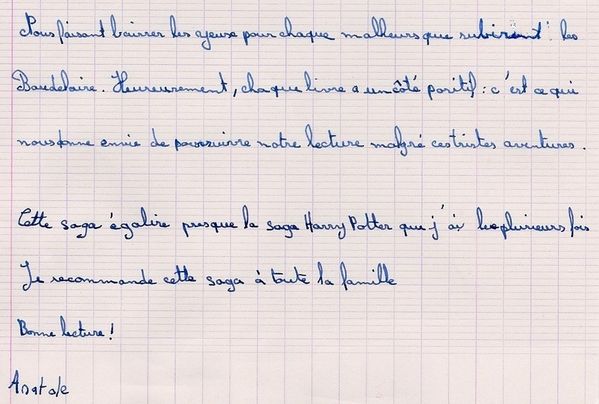 Nous faisant baisser les yeux pour chaque malheurs que subirent les
Baudelaire. Heureusement, chaque livre a un côté positif : c'est ce qui
nous donne envie de poursuivre notre lecture malgré ces tristes aventures.
Cette saga égalise presque la saga Harry Potter que j'ai lue plusieurs fois
Je recommande cette saga à toute la famille
Bonne lecture !
Anatole